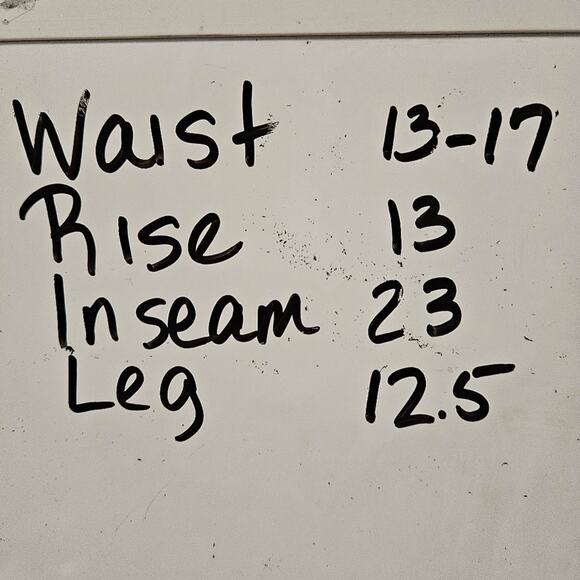 Waist 13-17
Rise 13
Inseam 23
Leg 12.5